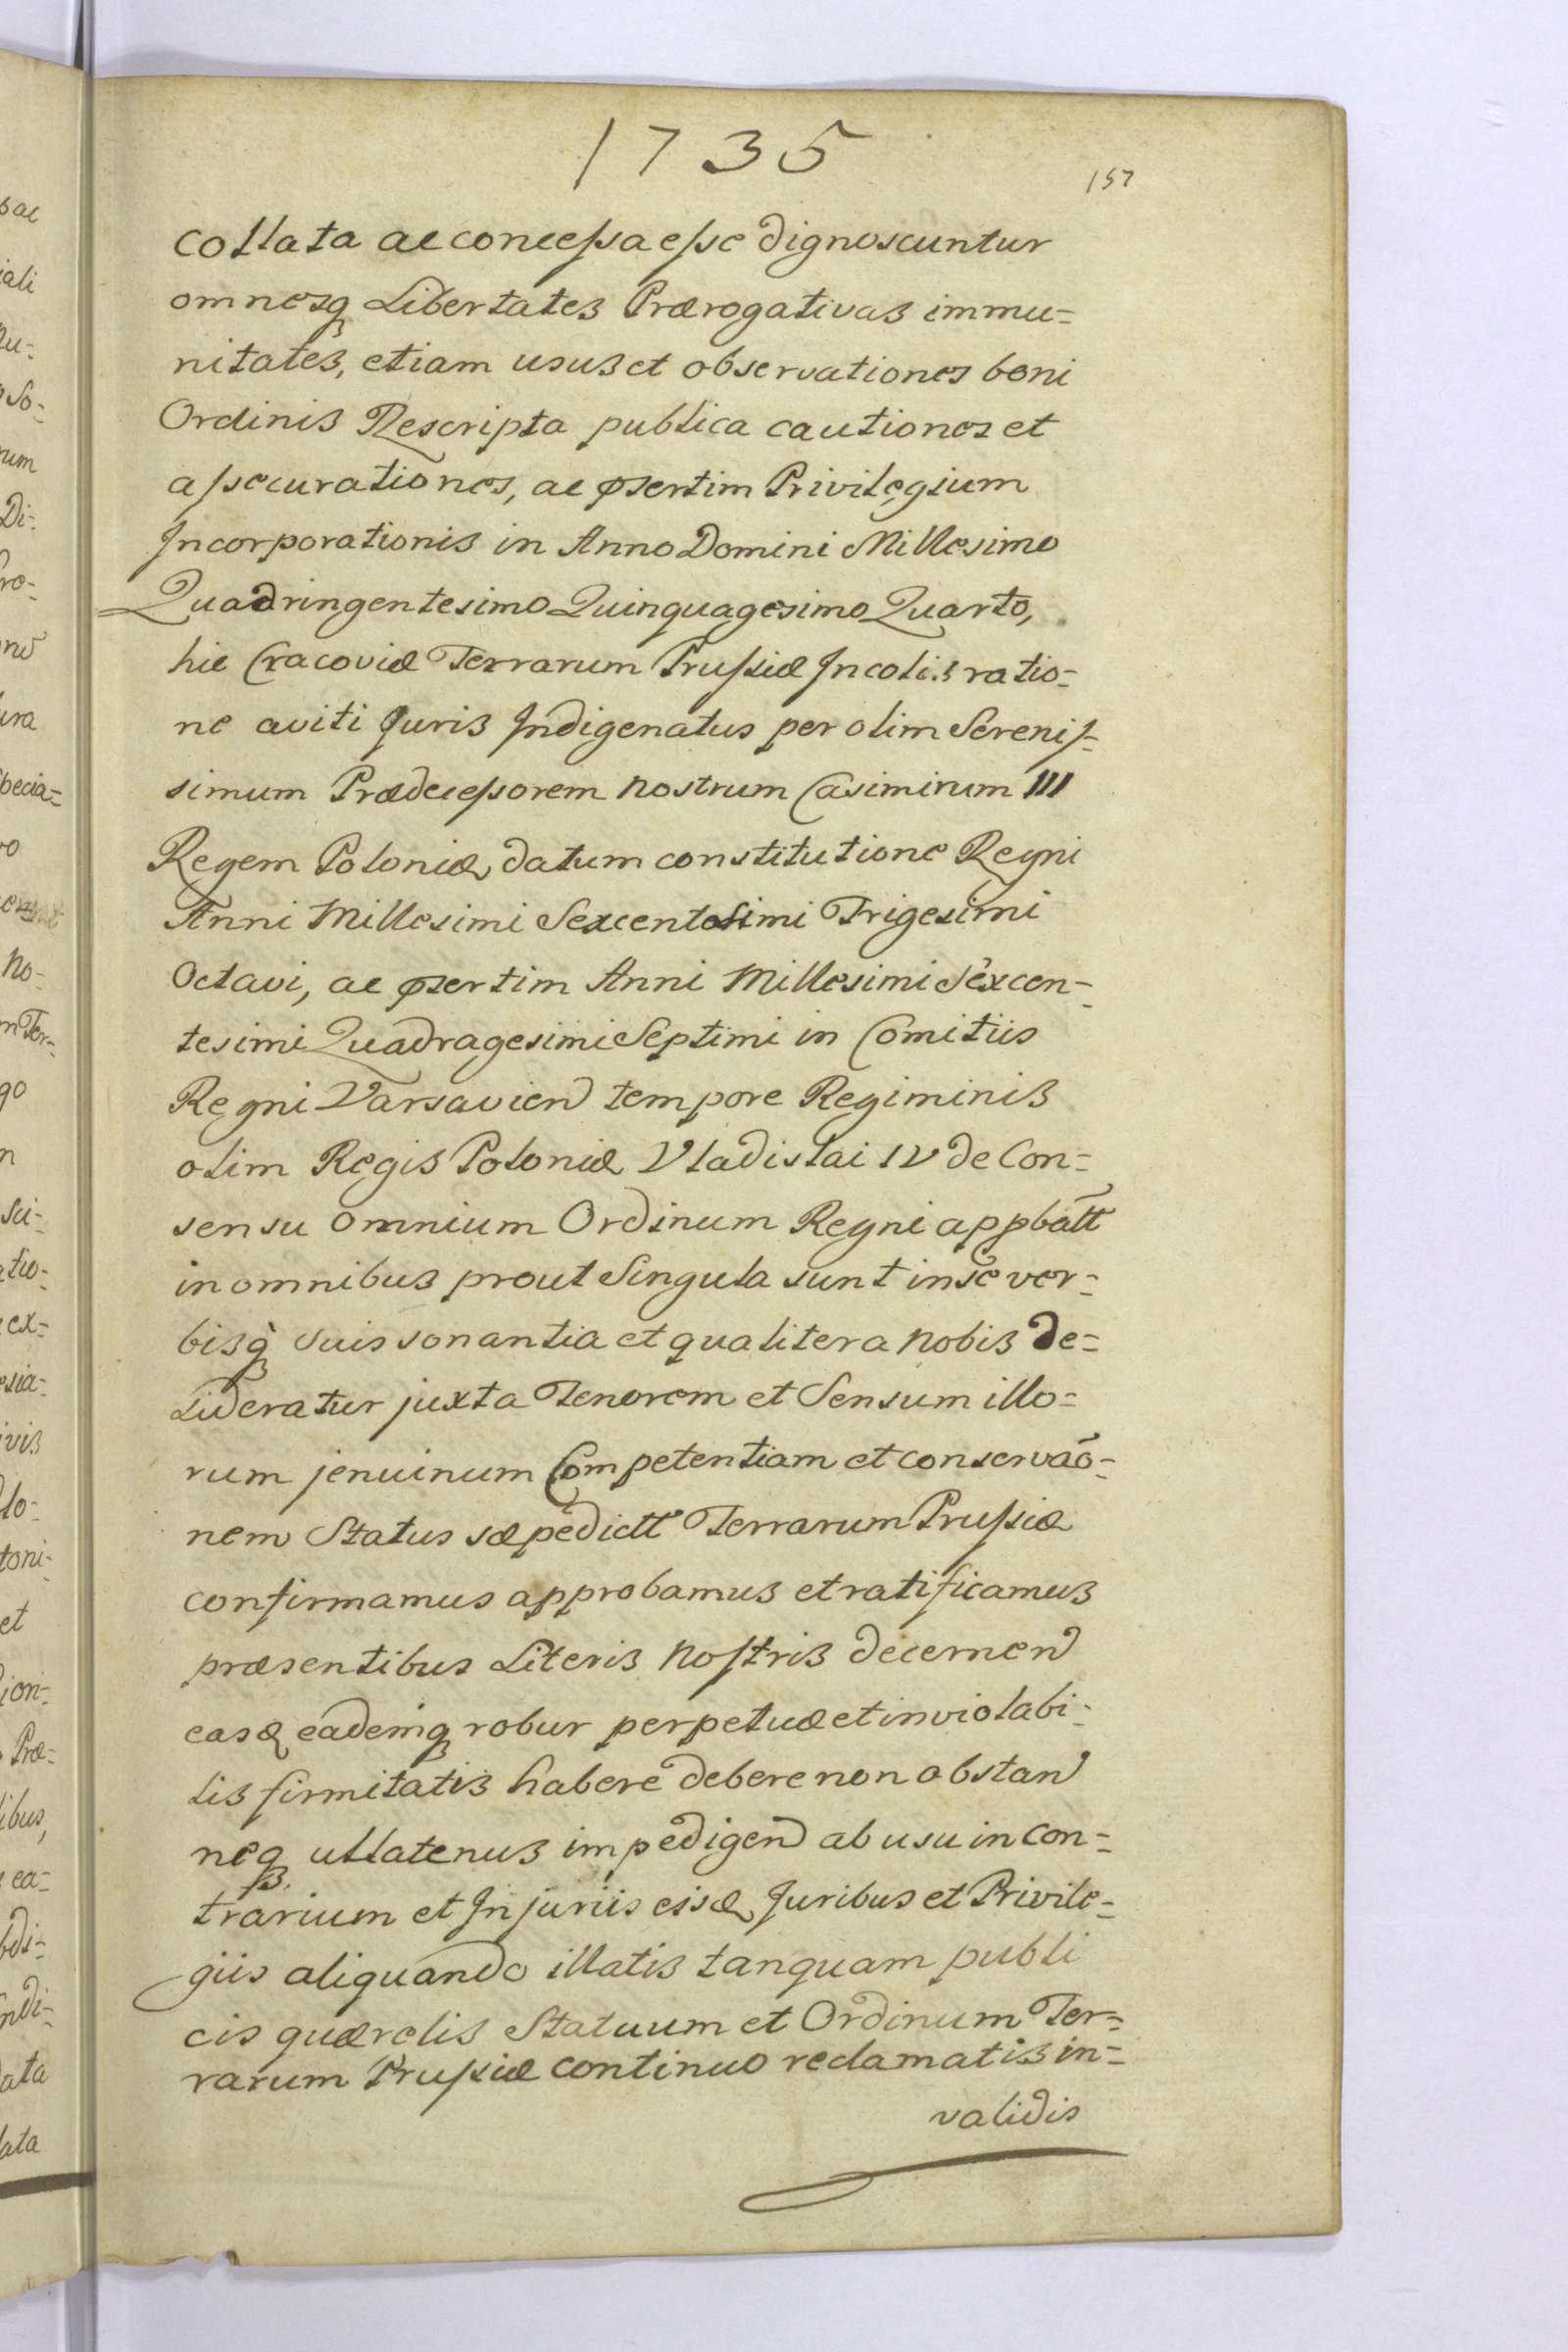 1735
157
collata ac concessa esse dignoscuntur
omnesq Libertates Prærogativas immu=
nitates, etiam usus et observationes boni
Ordinis Rescripta publica cautiones et
assecurationes, ac psertim Privilegium
Incorporationis in Anno Domini Millesimo
Quadringentesimo Quinquagesimo Quarto,
hic Cracoviæ Terrarum Prussiæ Incolis ratio=
ne aviti Juris Indigenatus per olim Serenis=
simum Prædecessorem nostrum Casimirum III
Regem Poloniæ, datum constitutione Regni
Anni Millesimi Sexcentesimi Trigesimi
Octavi, ac psertim Anni Millesimi Sexcen=
tesimi Quadragesimi Septimi in Comitiis
Regni Varsavien tempore Regiminis
olim Regis Poloniæ Vladislai IV de Con=
sensu omnium Ordinum Regni appbatt
in omnibus prout Singula sunt in se ver=
bisq suis sonantia et qualiter a nobis de=
sideratur juxta Tenorem et Sensum illo=
rum jenuinum Competentiam et conservaõ=
nem Status sæpedictt Terrarum Prussiæ
confirmamus approbamus et ratificamus
præsentibus Literis nostris decernen
easq eademq robur perpetuæ et inviolabi=
lis firmitatis habere debere non obstan
neq ullatenus impedigen ab usu in con=
trarium et Injuriis eisq Juribus et Privile=
giis aliquando illatis tanquam publi
cis quærelis Statuum et Ordinum Ter=
rarum Prussiæ continuo reclamatis in=
validis